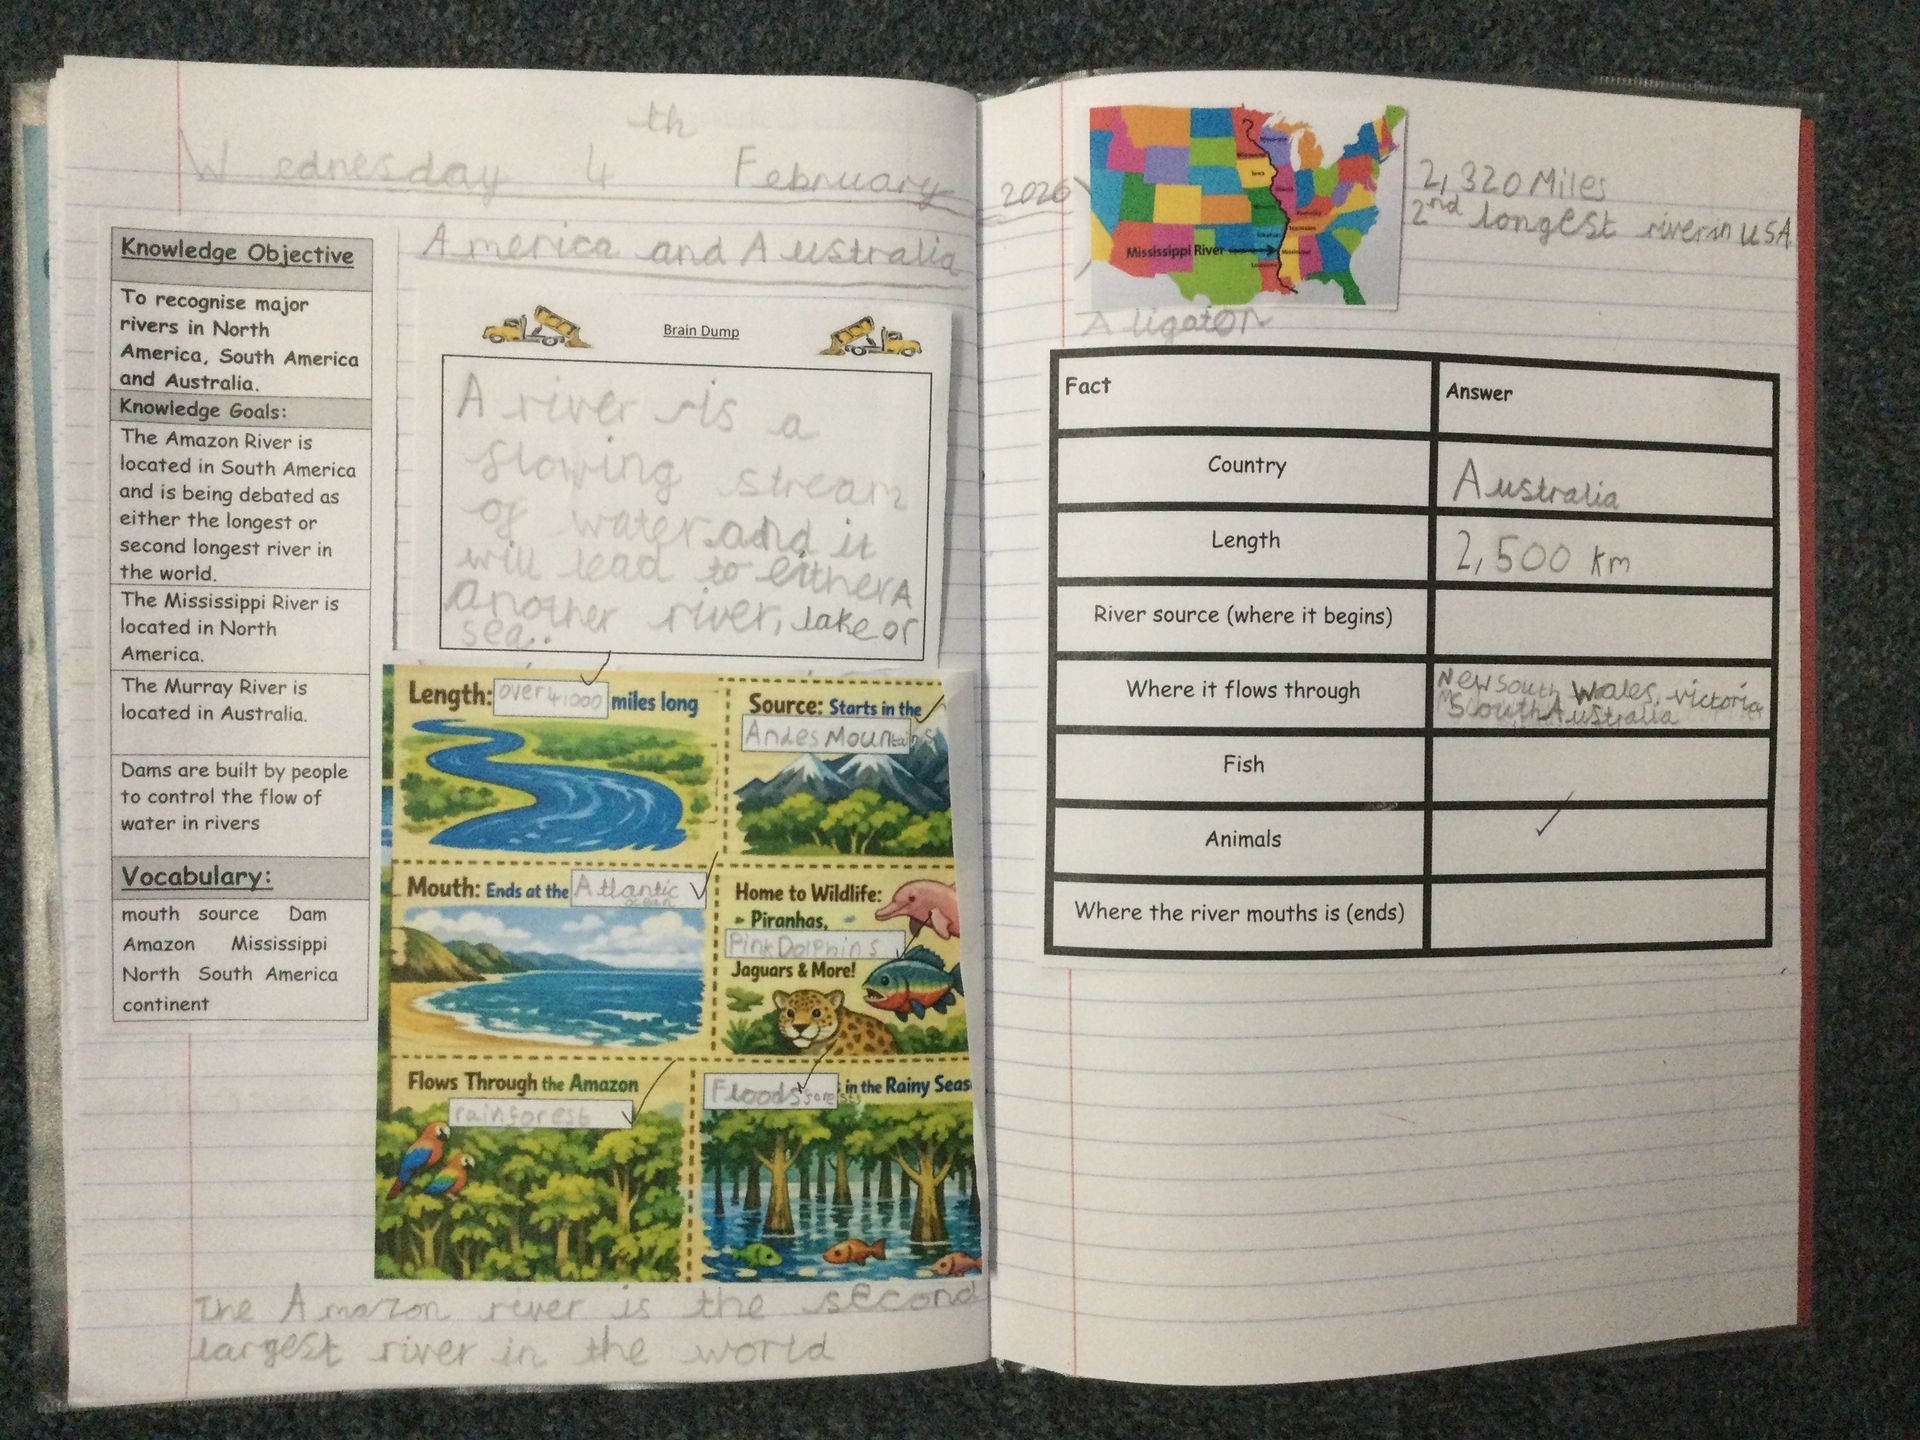 th
Wednesday 4 February 2026
America and Australia
Knowledge Objective
To recognise major
rivers in North
America, South America
and Australia.
Knowledge Goals:
The Amazon River is
located in South America
and is being debated as
either the longest or
second longest river in
the world.
The Mississippi River is
located in North
America.
The Murray River is
located in Australia.
Dams are built by people
to control the flow of
water in rivers
Vocabulary:
mouth source Dam
Amazon Mississippi
North South America
continent
Brain Dump
A river is a
flowing stream
of water and it
will lead to either A
another river, lake or
sea..
Length: over 4,000 miles long
Source: Starts in the
Andes Mountains
Mouth: Ends at the Atlantic
ocean
Home to Wildlife:
Piranhas,
Pink Dolphins
Jaguars & More!
Flows Through the Amazon
rainforest
Floods forests in the Rainy Seas
The Amazon river is the second
largest river in the world
Mississippi River
2,320 Miles
2nd longest river in USA
Aligator
Fact Answer
Country Australia
Length 2,500 km
River source (where it begins)
Where it flows through
New South Wales, victoria
South Australia
Fish
Animals
Where the river mouths is (ends)